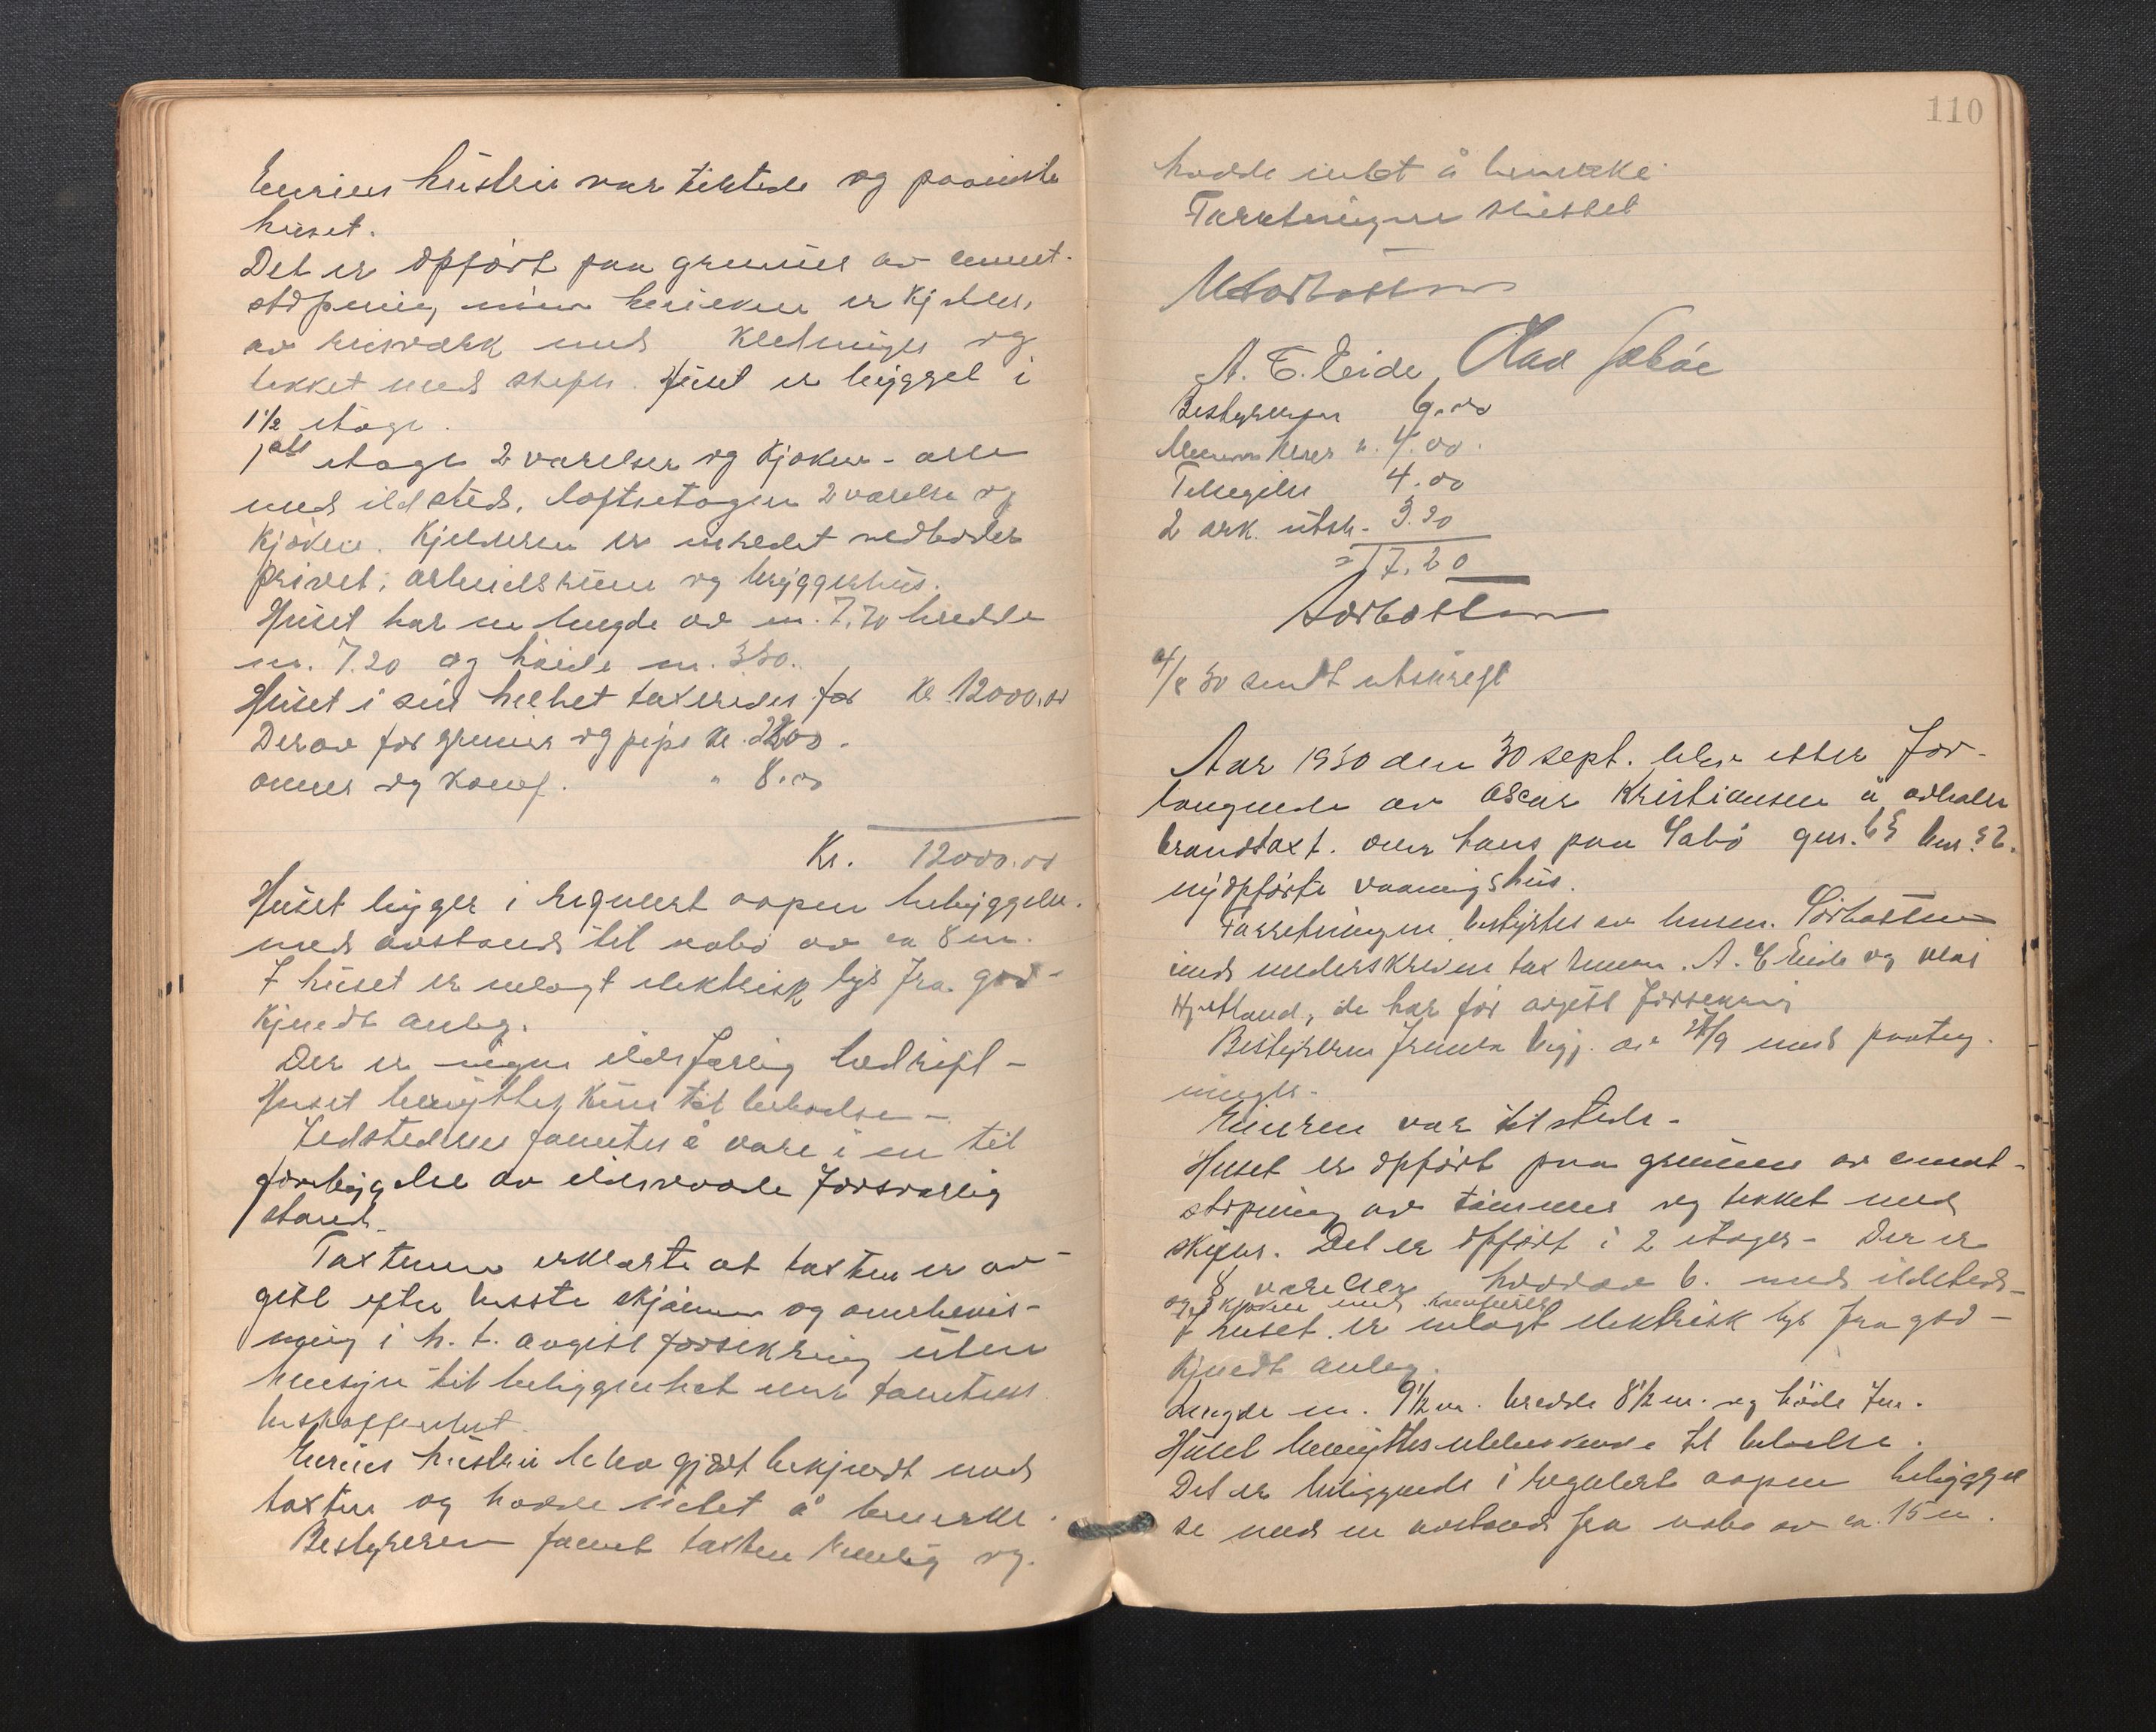 Eierens hustru var tilstede og paaviste
huset.
Det er opført paa grunmur av cement-
støpning, under er kjelder,
av med Kledninger og
tekket med skifer. Huset er bygget i
1 1/2 etage.
1ste etage 2 værelser og kjøken - alle
med ildsted. Loftsetagen 2 værelse og
kjøken. Kjelderen er inredet vedboder
privet, arbeidsrum og bryggerhus.
Huset har en lengde av m. 7.70 bredde
m. 7.20 og høide m.
Huset i sin helhet taxeredes for Kr 12000.00
Derav for grunmur og pipe kr.
ovner og komf. "
Kr. 12000.00
Huset ligger i regulert aapen bebyggelse
med avstand til nabo av ca 8 m.
I huset er inlagt elektrisk lys fra god-
kjendt anleg.
Der er ingen ildsfarlig bedrift -
Huset benyttes kun til beboelse -
Ildstederne fantes å være i en til
forebyggelse av ildsvaade forsvarlig
stand.
Taxtmen erklærte at taxten er av-
gitt efter beste skjønn og overbevis-
ning i h. t. avgitt forsikring uten
hensyn til beliggenhet eller tomtens
beskaffenhet.
Eierens hustru blev gjort bekjendt med
taxten og hadde intet å bemerke.
Bestyreren fannt taxten rimelig og
110
hadde intet å bemerke
Forretningen sluttet
A. E. Eide, Olav Sæbøe
Bestyreren 6.00
4.00.
4.00
2 ark. utsk. 3.20
= 17.20
Sørbotten
4/8 30 sendt utskrift
Aar 1930 den 30 sept. blev efter for-
langende av Oscar Kristiansen avholdt
brandtaxt. over hans paa Sæbø gnr. bnr.
nyopførte vaaningshus.
Forretningen bestyrtes av lensm. Sørbotten
med underskrevne taxtmenn. A. E Eide og Olai
Hjetland, de har før avgitt forsikring
Bestyreren fremla av 28/9 med paateg-
ninger.
Eieren var tilstede.
Huset er opført paa grunmur av cement-
støpning av tømmer og tekket med
skifer. Det er opført i 2 etager - Der er
8 værelser hvorav 6. med ildsted -
og 2 kjøken med komfurer
I huset er inlagt elektrisk lys fra god-
kjendt anleg.
Lengde m. 9 1/2 m. bredde 8 1/2 m. og höide 7 m.
Huset benyttes utelukkende til beboelse.
Det er beliggende i regulert aapen bebyggel
se med en avstand fra nabo av ca. 15 m.